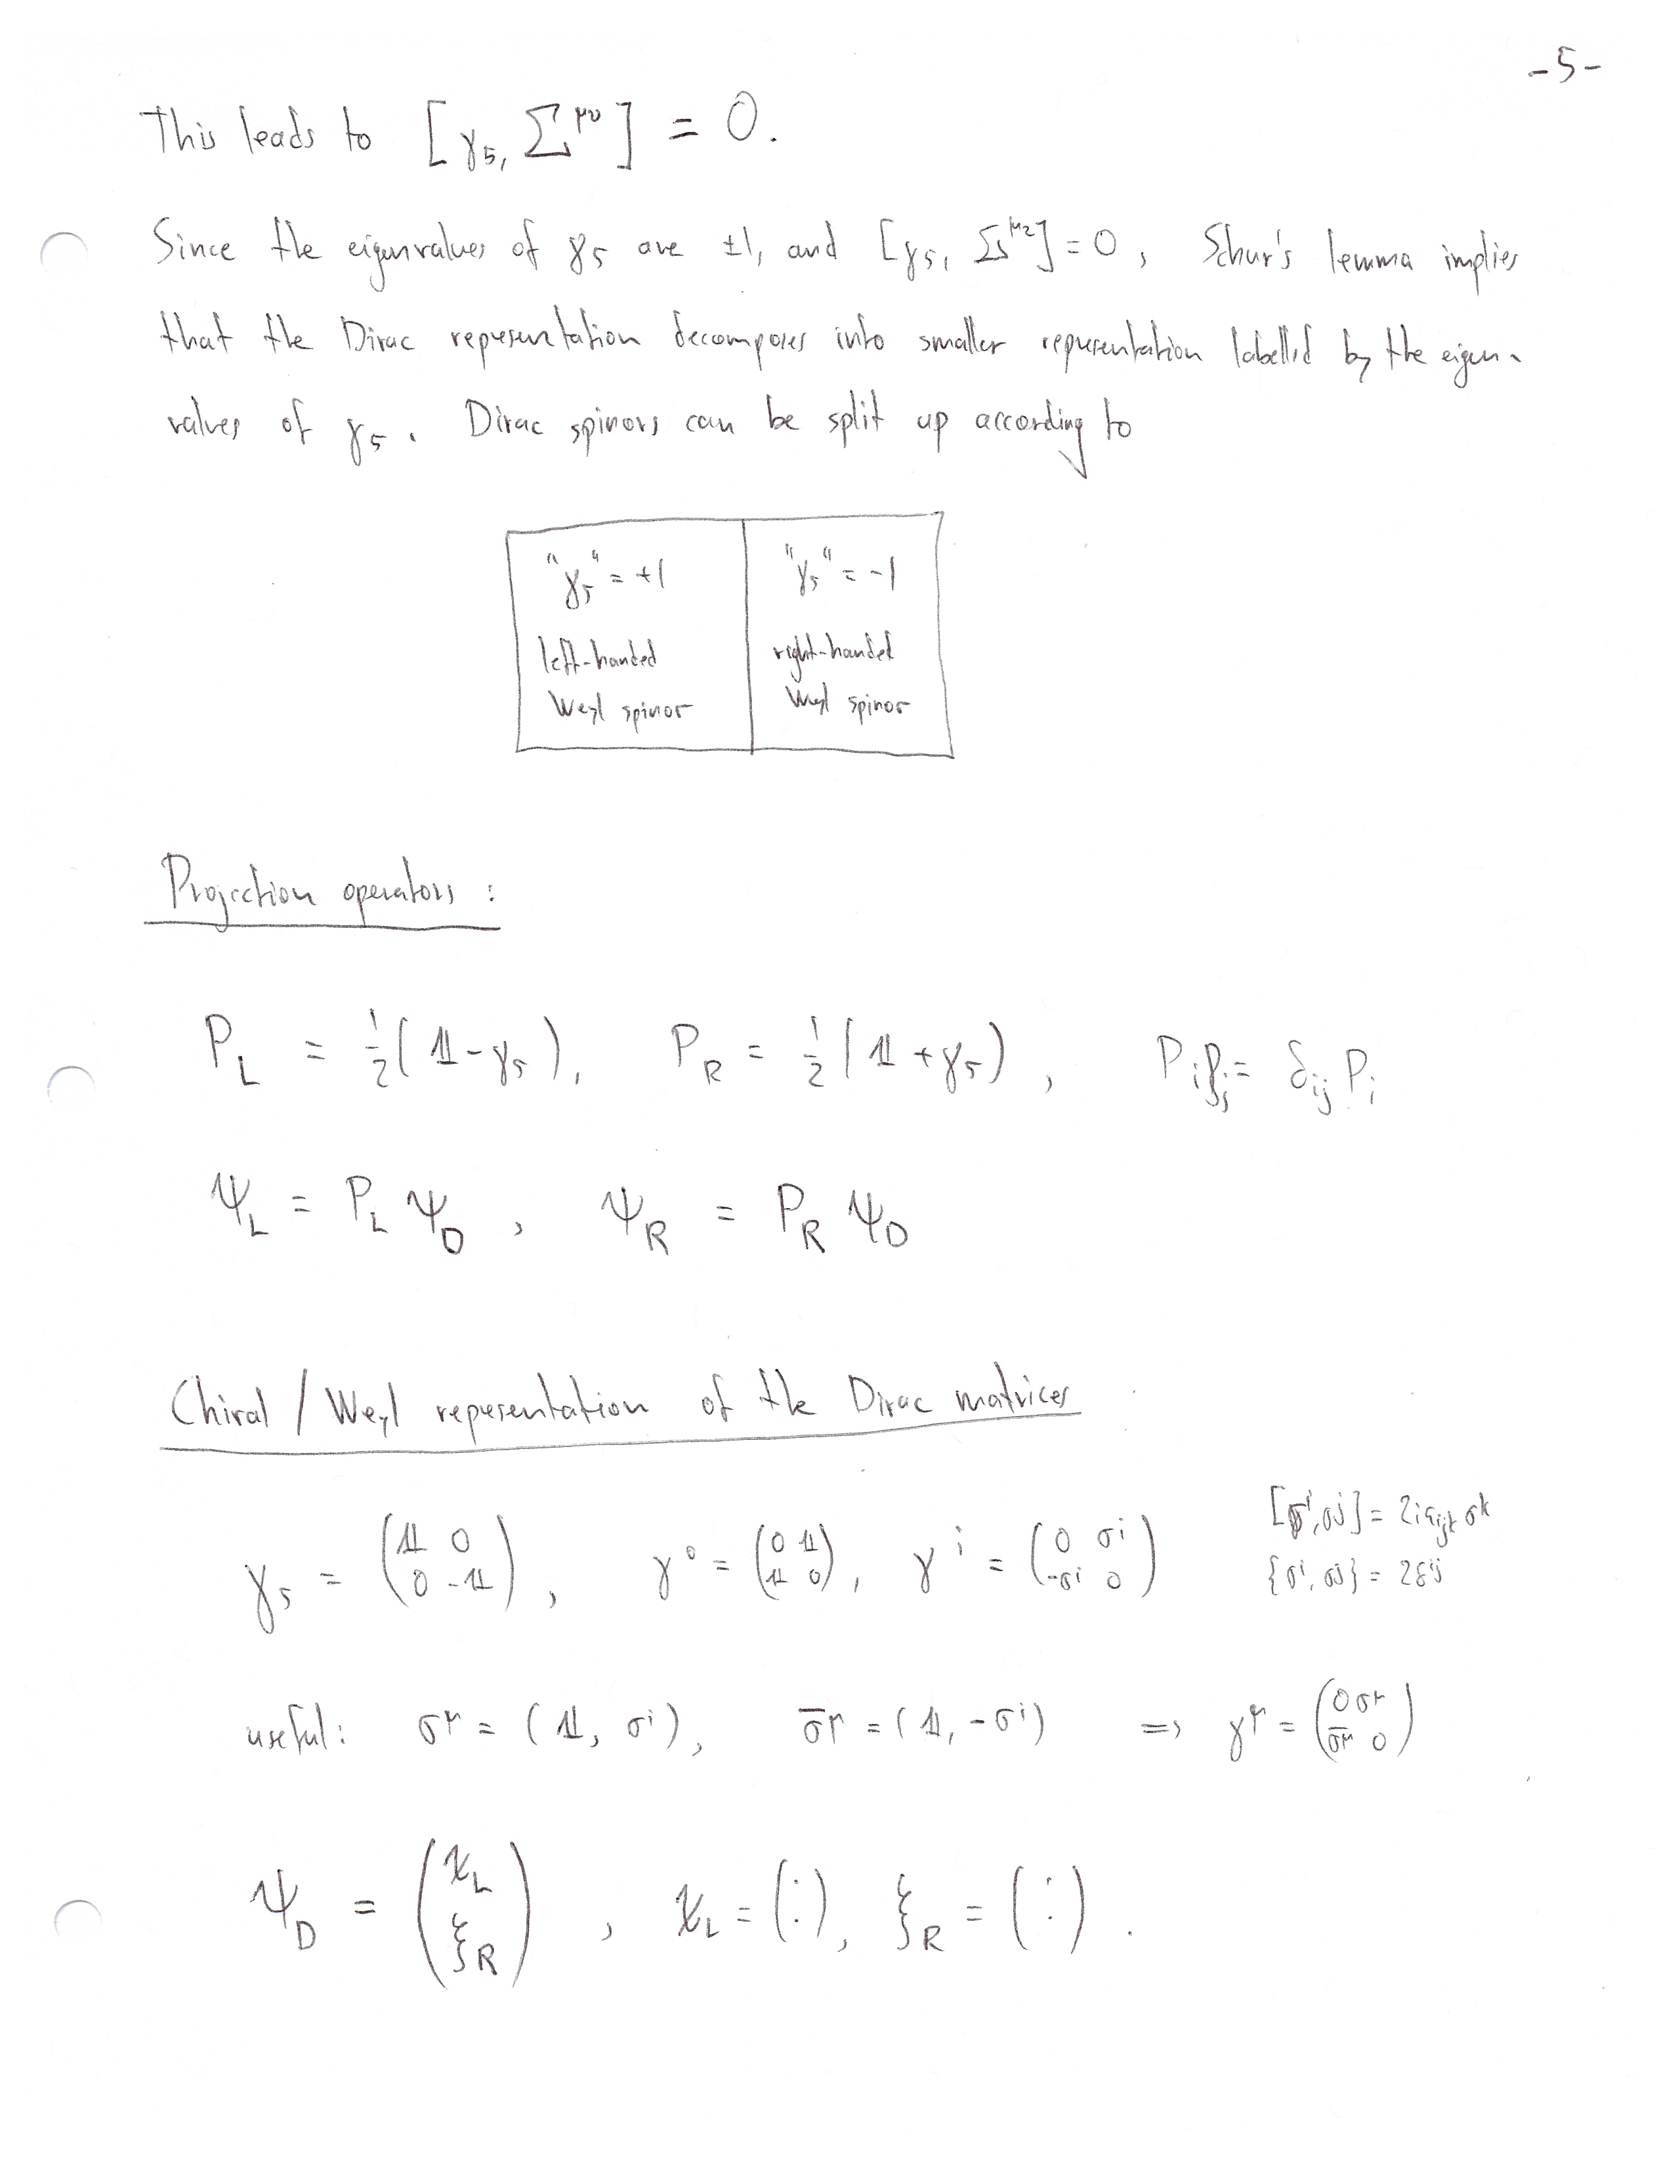 -5-
This leads to [γ5, Σ^μν] = 0.
Since the eigenvalues of γ5 are ±1, and [γ5, Σ^μν] = 0, Schur's lemma implies
that the Dirac representation decomposes into smaller representation labelled by the eigen-
values of γ5. Dirac spinors can be split up according to
"γ5" = +1 "γ5" = -1
left-handed right-handed
Weyl spinor Weyl spinor
Projection operators:
P_L = 1/2 (𝟙 - γ5), P_R = 1/2 (𝟙 + γ5), P_i P_j = δ_ij P_i
ψ_L = P_L ψ_D, ψ_R = P_R ψ_D
Chiral / Weyl representation of the Dirac matrices
[σ^i, σ^j] = 2i ε_ijk σ^k
γ5 = (𝟙 0 ; 0 -𝟙), γ^0 = (0 𝟙 ; 𝟙 0), γ^i = (0 σ^i ; -σ^i 0)
{σ^i, σ^j} = 2δ^ij
useful: σ^μ = (𝟙, σ^i), σ̄^μ = (𝟙, -σ^i) => γ^μ = (0 σ^μ ; σ̄^μ 0)
ψ_D = (χ_L ; ξ_R), χ_L = (:), ξ_R = (:).